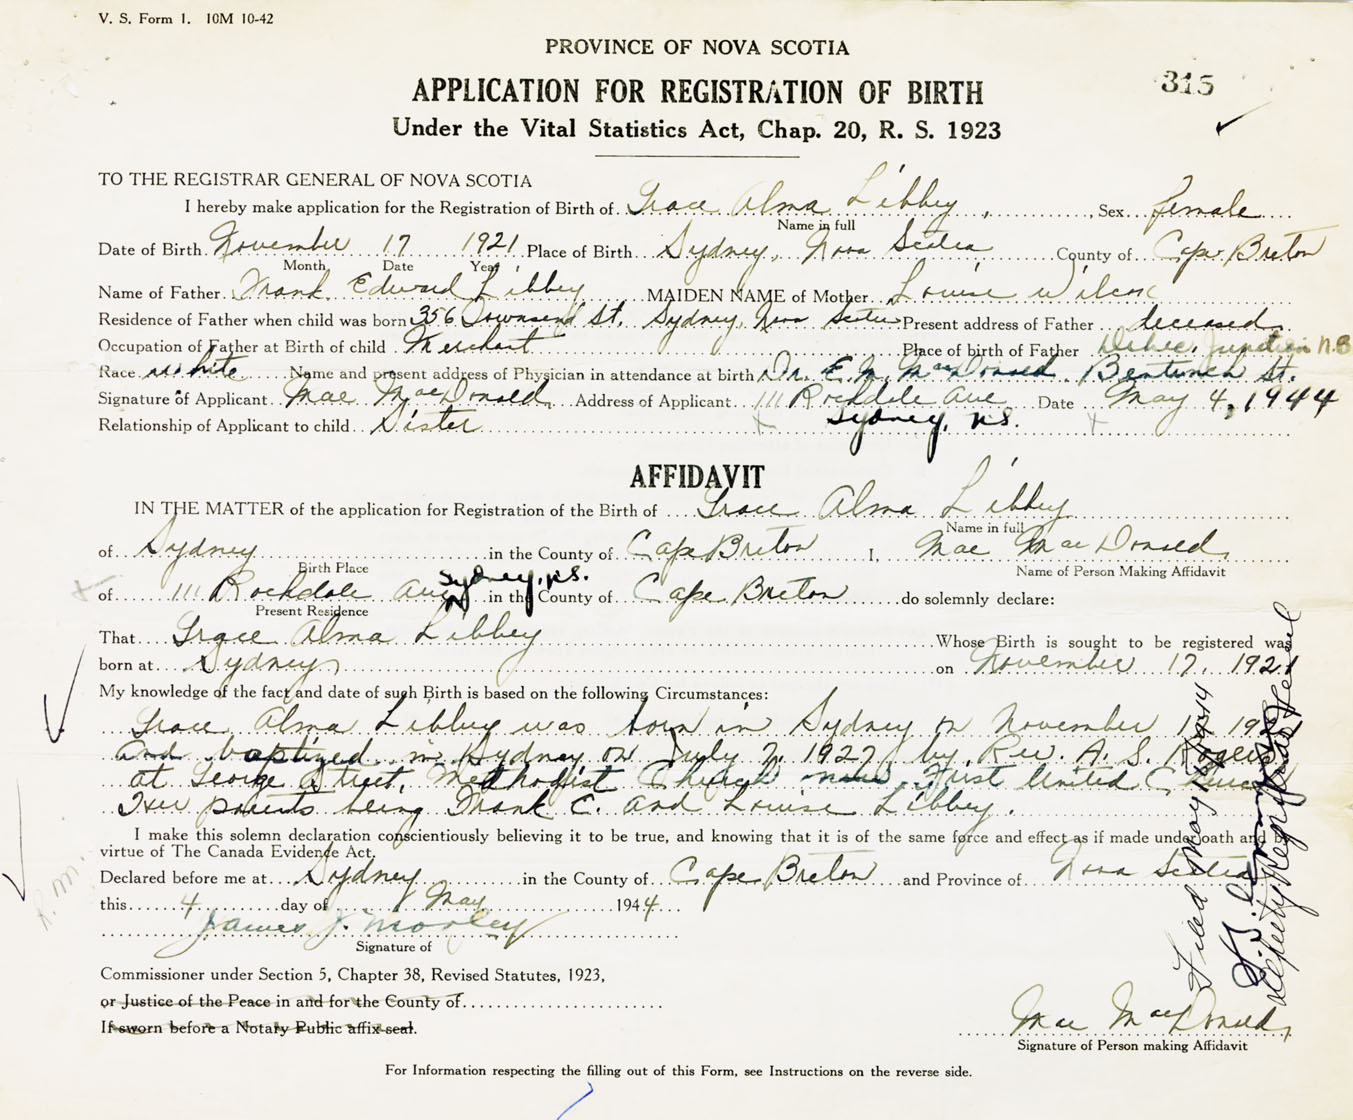 V. S. Form 1. 10M 10-42
PROVINCE OF NOVA SCOTIA
315
APPLICATION FOR REGISTRATION OF BIRTH
Under the Vital Statistics Act, Chap. 20, R. S. 1923
TO THE REGISTRAR GENERAL OF NOVA SCOTIA
I hereby make application for the Registration of Birth of Grace Alma Libbey, Sex female
Name in full
Date of Birth November 17 1921 Place of Birth Sydney, Nova Scotia County of Cape Breton
Month Date Year
Name of Father Frank Edward Libbey MAIDEN NAME of Mother Louise Wilcox
Residence of Father when child was born 356 Townsend St. Sydney, Nova Scotia Present address of Father deceased
Occupation of Father at Birth of child Merchant Place of birth of Father Debec Junction N.B
Race white Name and present address of Physician in attendance at birth Dr. E. M. MacDonald Bentinck St.
Signature of Applicant Mae MacDonald Address of Applicant 111 Rockdale Ave Date May 4, 1944
Relationship of Applicant to child Sister Sydney, N.S.
AFFIDAVIT
IN THE MATTER of the application for Registration of the Birth of Grace Alma Libbey
Name in full
of Sydney in the County of Cape Breton I, Mae MacDonald
Birth Place Name of Person Making Affidavit
of 111 Rockdale Ave Sydney, N.S. in the County of Cape Breton do solemnly declare:
Present Residence
That Grace Alma Libbey Whose Birth is sought to be registered was
born at Sydney on November 17, 1921
My knowledge of the fact and date of such Birth is based on the following Circumstances:
Grace Alma Libbey was born in Sydney on November 17 19
and baptized in Sydney on July 7, 1922, by Rev. A. S. Rogers
at George Street, Methodist Church now First United Church
Her parents being Frank E. and Louise Libbey.
I make this solemn declaration conscientiously believing it to be true, and knowing that it is of the same force and effect as if made under oath and by
virtue of The Canada Evidence Act,
Declared before me at Sydney in the County of Cape Breton and Province of Nova Scotia
this 4 day of May 1944
James J. Morley
Signature of
Commissioner under Section 5, Chapter 38, Revised Statutes, 1923,
or Justice of the Peace in and for the County of
If sworn before a Notary Public affix seal.
Mae MacDonald
Signature of Person making Affidavit
For Information respecting the filling out of this Form, see Instructions on the reverse side.
R.M.
Filed May
Deputy Registrar General